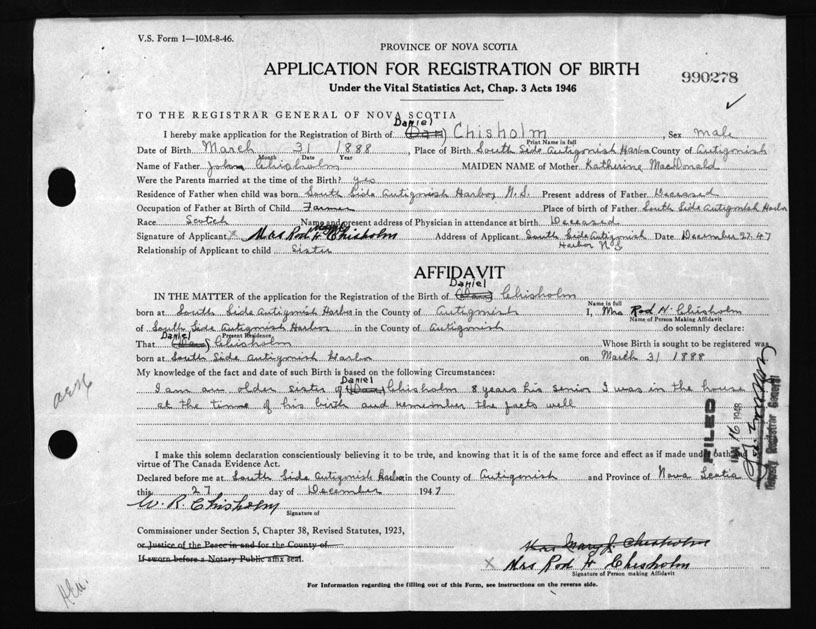 V.S. Form 1—10M-8-46.
PROVINCE OF NOVA SCOTIA
APPLICATION FOR REGISTRATION OF BIRTH
990278
Under the Vital Statistics Act, Chap. 3 Acts 1946
TO THE REGISTRAR GENERAL OF NOVA SCOTIA
Daniel
I hereby make application for the Registration of Birth of (Dan) Chisholm, Sex male
Print Name in full
Date of Birth March 31 1888, Place of Birth South Side Antigonish Harbor County of Antigonish
Month Date Year
Name of Father John Chisholm MAIDEN NAME of Mother Katherine MacDonald
Were the Parents married at the time of the Birth? yes
Residence of Father when child was born South Side Antigonish Harbor, N.S. Present address of Father Deceased
Occupation of Father at Birth of Child Farmer Place of birth of Father South Side Antigonish Harbor
Race Scotch Name and present address of Physician in attendance at birth Deceased
Signature of Applicant x Mrs Rod H Chisholm Address of Applicant South Side Antigonish Date December 27. 47
Harbor N.S
Relationship of Applicant to child Sister
AFFIDAVIT
Daniel
IN THE MATTER of the application for the Registration of the Birth of (Dan) Chisholm
Name in full
born at South Side Antigonish Harbor in the County of Antigonish I, Mrs Rod H. Chisholm
Name of Person Making Affidavit
of South Side Antigonish Harbor in the County of Antigonish do solemnly declare:
Present Residence
Daniel
That (Dan) Chisholm Whose Birth is sought to be registered was
born at South Side Antigonish Harbor on March 31 1888
My knowledge of the fact and date of such Birth is based on the following Circumstances:
Daniel
I am an older sister of (Dan) Chisholm 8 years his senior I was in the house
at the time of his birth and remember the facts well
I make this solemn declaration conscientiously believing it to be true, and knowing that it is of the same force and effect as if made under oath by
virtue of The Canada Evidence Act.
Declared before me at South Side Antigonish Harbor in the County of Antigonish and Province of Nova Scotia
this 27 day of December 1947
W. R. Chisholm
Signature of
Commissioner under Section 5, Chapter 38, Revised Statutes, 1923,
or Justice of the Peace in and for the County of
If sworn before a Notary Public affix seal.
Mrs Mary J. Chisholm
x Mrs Rod H Chisholm
Signature of Person making Affidavit
For Information regarding the filling out of this Form, see instructions on the reverse side.
FILED
16 1948
Deputy Registrar General